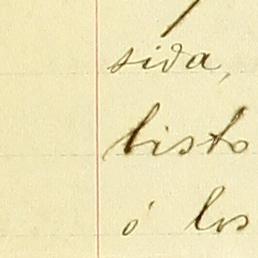 sida,
listo
ó los